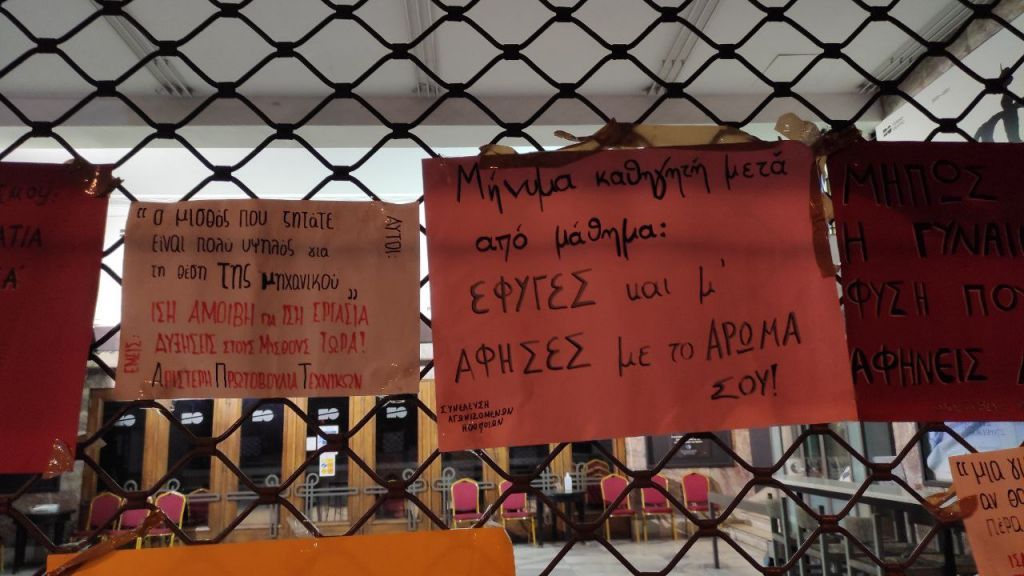 ΑΥΤΟΙ:
"Ο μισθός που ζητάτε
είναι πολύ υψηλός για
τη θέση της μηχανικού"
ΕΜΕΙΣ:
ΙΣΗ ΑΜΟΙΒΗ για ΙΣΗ ΕΡΓΑΣΙΑ
ΑΥΞΗΣΕΙΣ ΣΤΟΥΣ ΜΙΣΘΟΥΣ ΤΩΡΑ!
ΑΡΙΣΤΕΡΗ ΠΡΩΤΟΒΟΥΛΙΑ ΤΕΧΝΙΚΩΝ
Μήνυμα καθηγητή μετά
από μάθημα:
ΕΦΥΓΕΣ και μ'
ΑΦΗΣΕΣ με το ΑΡΩΜΑ
ΣΟΥ!
ΣΥΝΕΛΕΥΣΗ
ΑΓΩΝΙΖΟΜΕΝΩΝ
ΗΘΟΠΟΙΩΝ
ΜΗΠΩΣ
Η ΓΥΝΑΙ
ΦΥΣΗ ΠΟΥ
ΑΦΗΝΕΙΣ
"μια
αν
πέρα